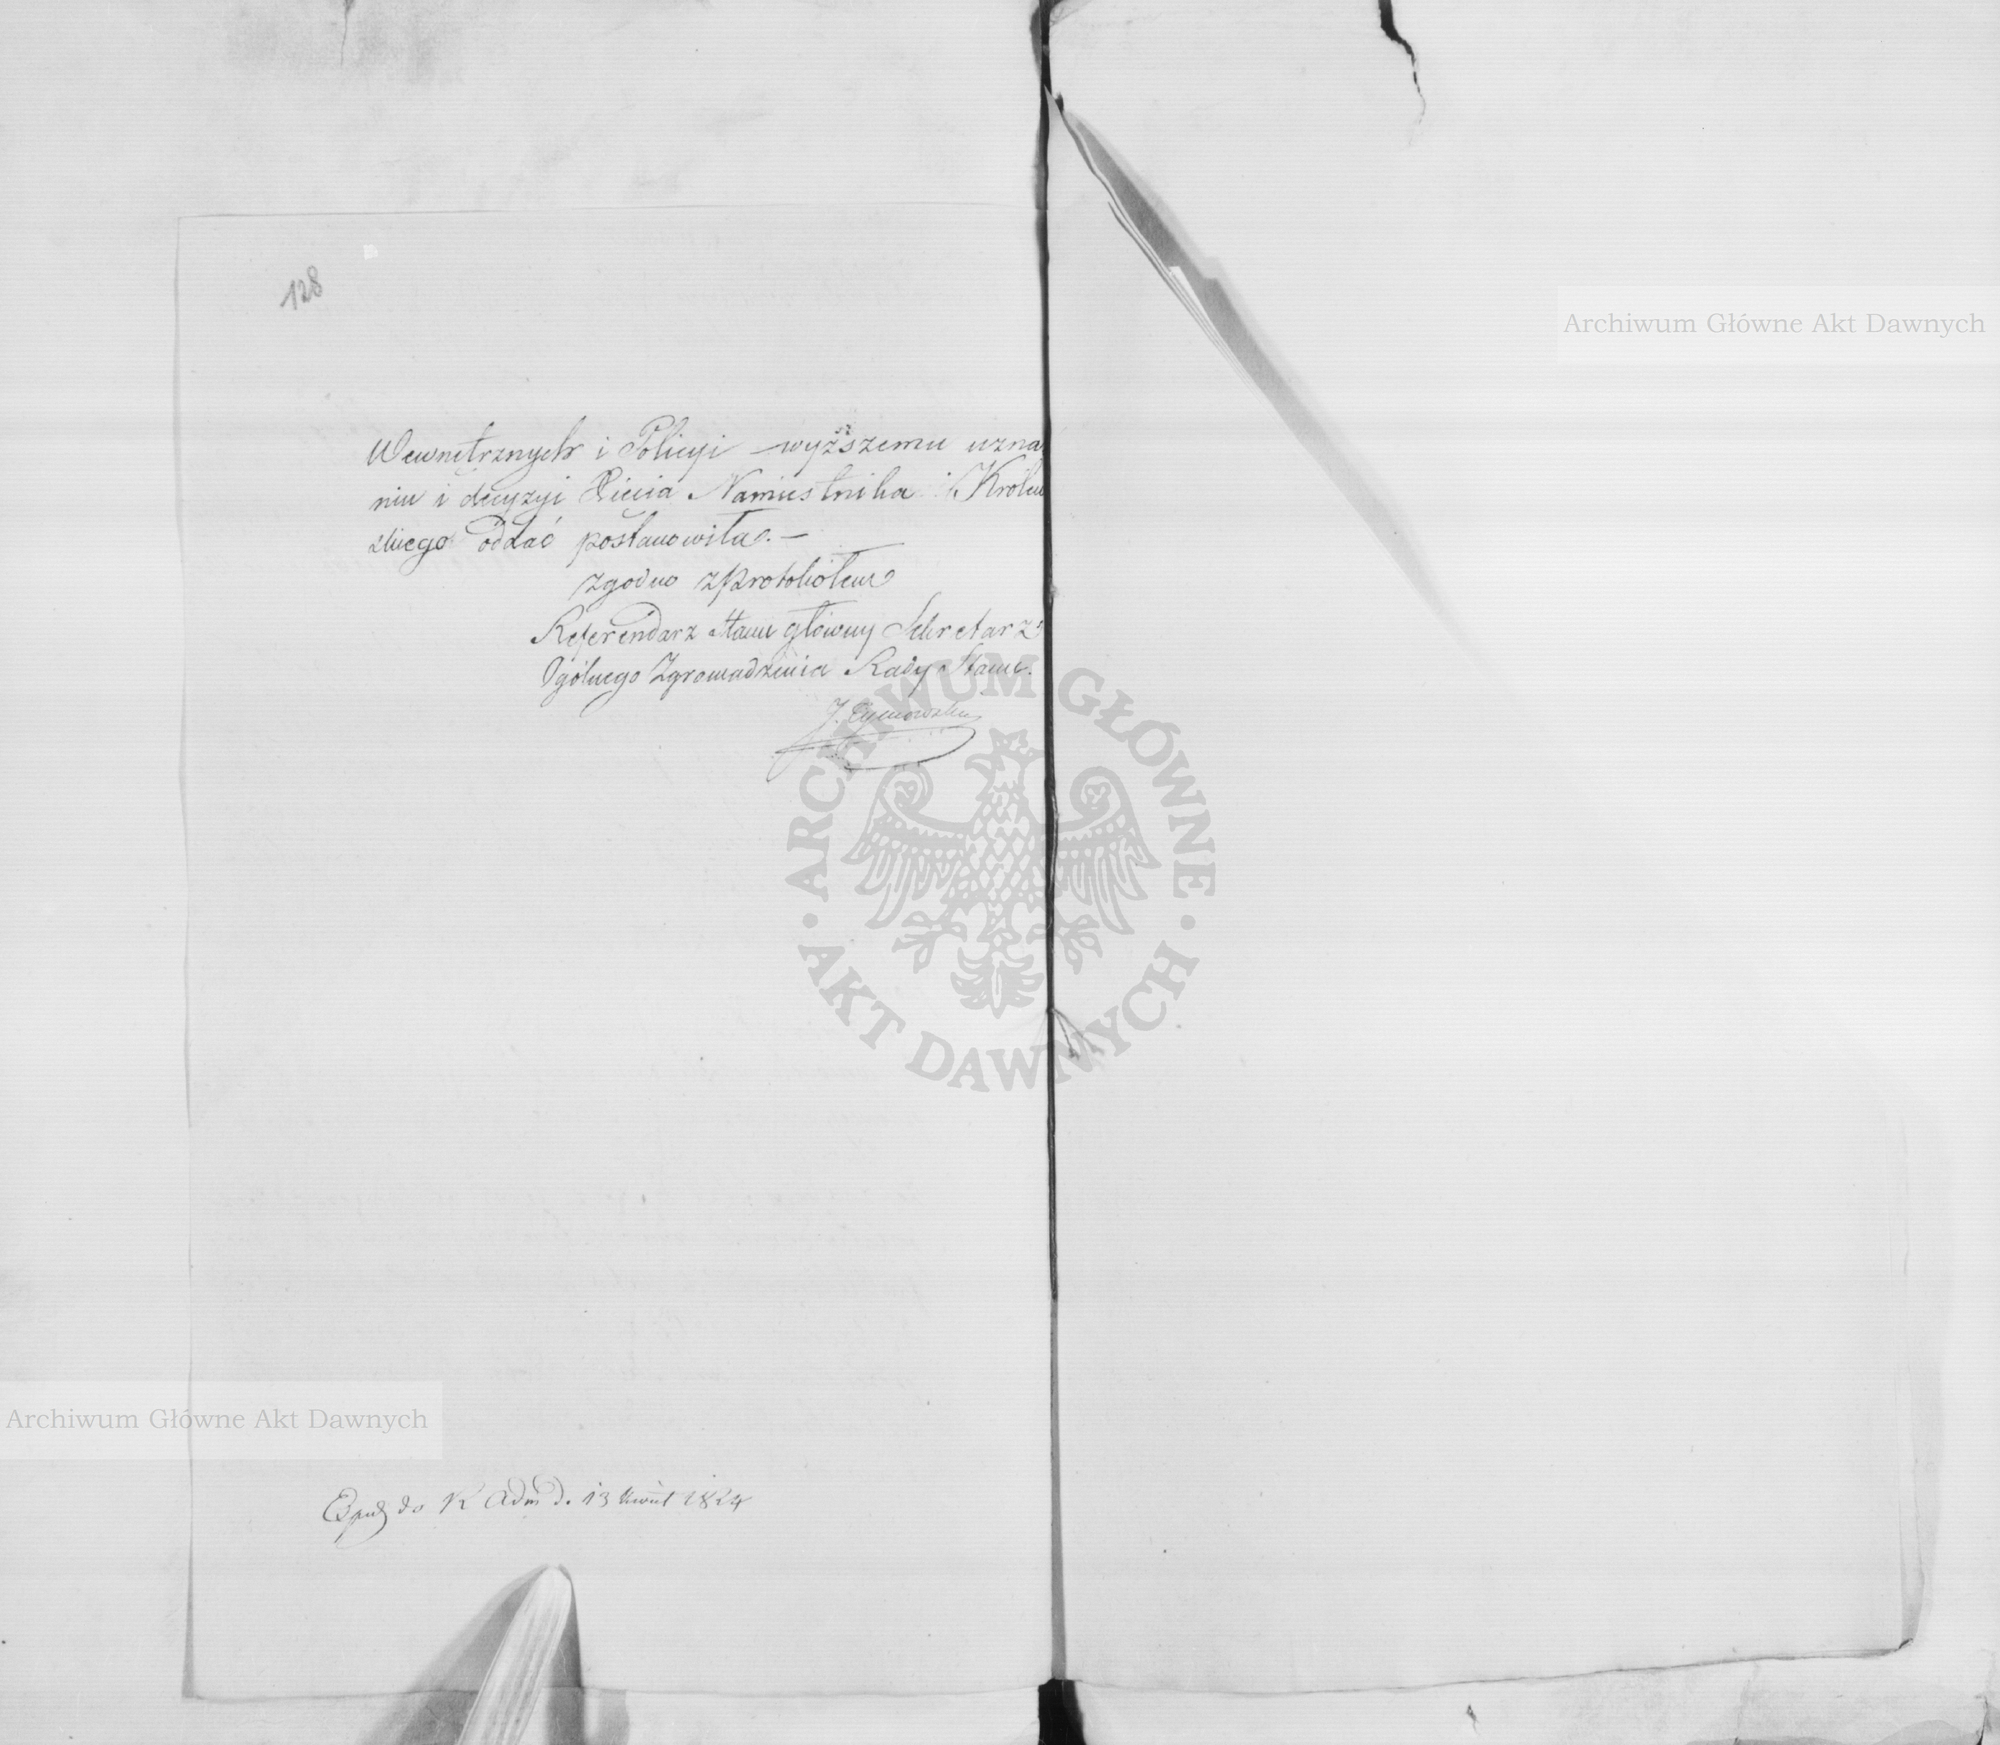 128
Wewnętrznych i Policyi wyższemu uzna
niu i decyzyi Xięcia Namiestnika Królew
skiego oddać postanowiła.—
Zgodno z Protokółem
Referendarz Stanu główny Sekretarz
Ogólnego Zgromadzenia Rady Stanu.
J. Tymowski
do K Adm d. 13 Kwiet 1824
Archiwum Główne Akt Dawnych
Archiwum Główne Akt Dawnych
ARCHIWUM GŁÓWNE • AKT DAWNYCH •